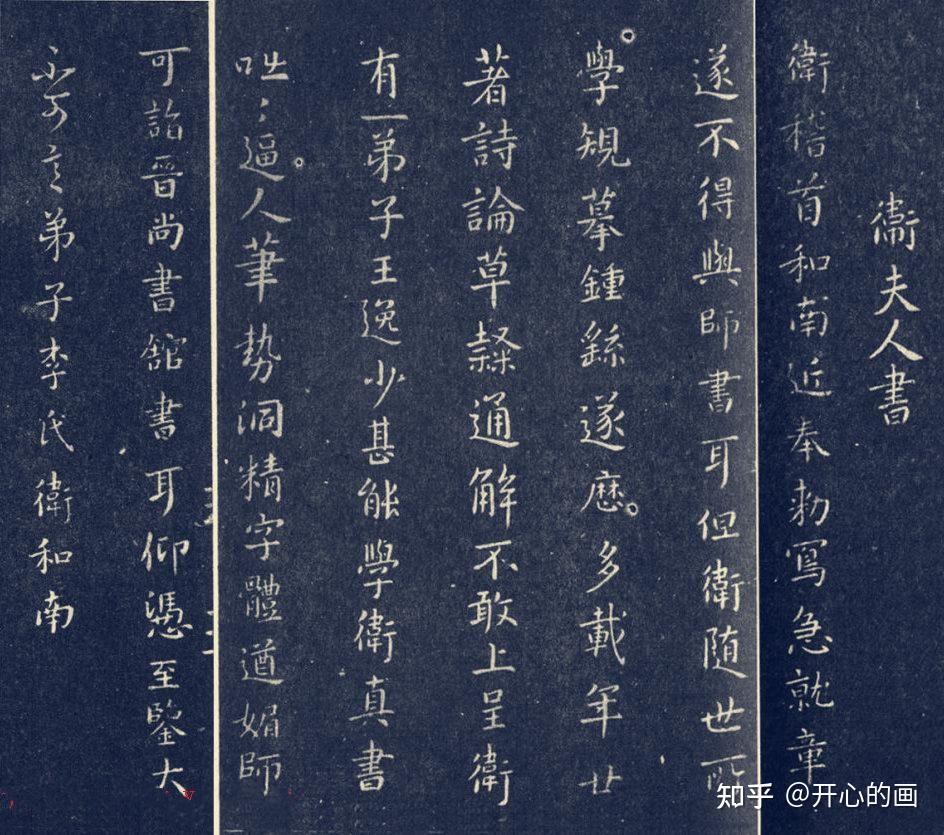 衛夫人書
衛稽首和南近奉勑寫急就章
遂不得與師書耳但衛隨世所
學規摹鍾繇遂歷多載年廿
著詩論草隸通解不敢上呈衛
有一弟子王逸少甚能學衛真書
咄〻逼人筆勢洞精字體遒媚師
可詣晉尚書舘書耳仰憑至鑒大
不可言弟子李氏衛和南
知乎 @开心的画